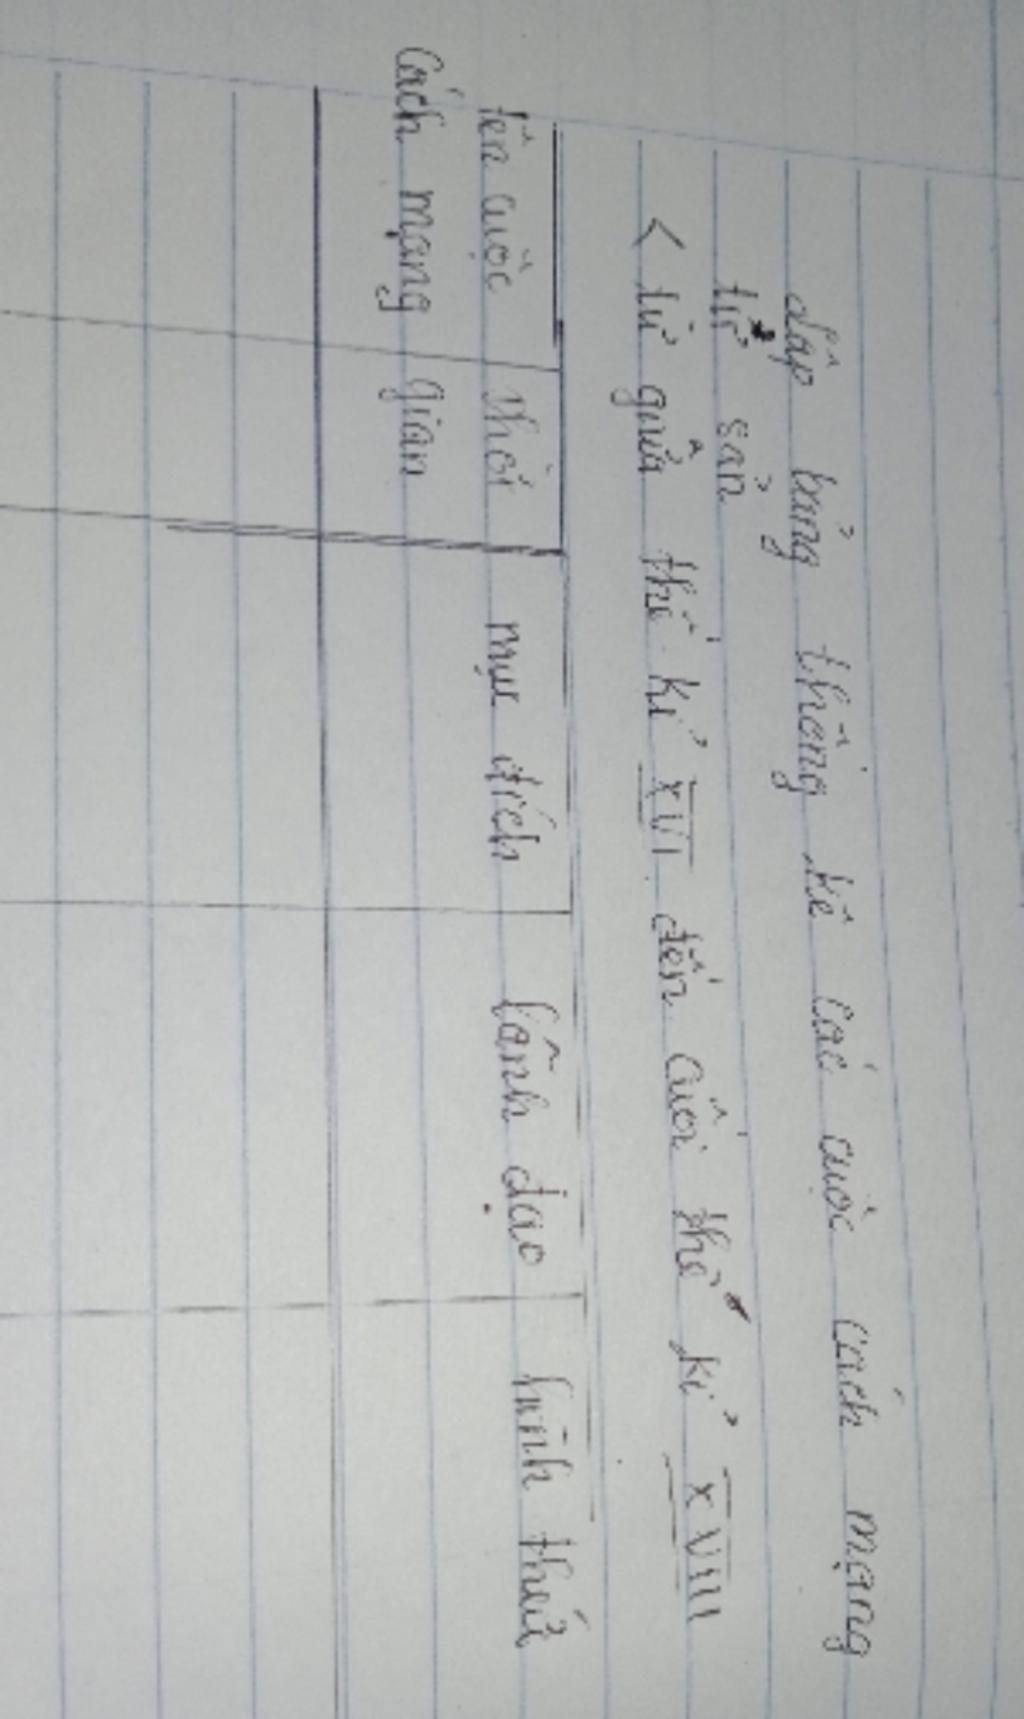 Lập bảng thống kê các cuộc cách mạng
tư sản
< từ giữa thế kỉ XVI đến cuối thế kỉ XVIII
tên cuộc cách mạng
thời gian
mục đích
lãnh đạo
hình thức